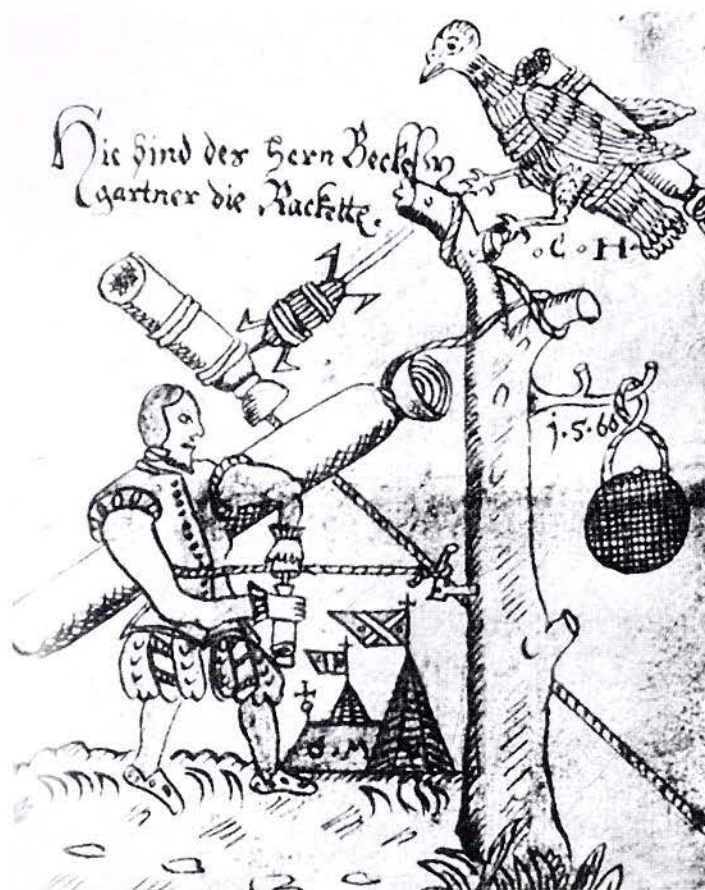 Hie sind des hern
gartner die Rackette.
.C.H.
j.5.60